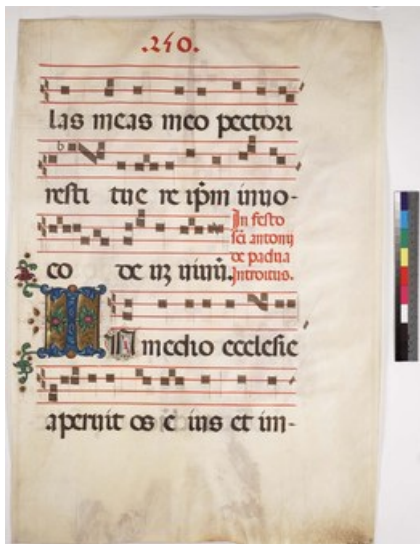 .240.
las meas meo pectori
resti tue re ip̃m inuo-
co
In festo
sc̃i antonij
de padua
Introitus.
IN medio ecclesie
aperuit os e ius et im-